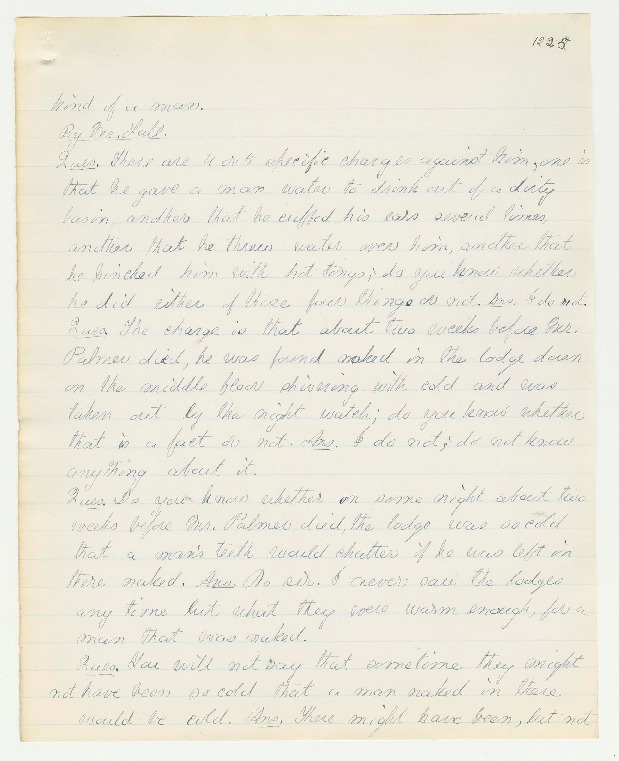 1225
kind of a man.
By Mr. Hall.
Ques. There are 4 or 5 specific charges against him, one is
that he gave a man water to drink out of a dirty
basin, another that he cuffed his ears several times,
another that he threw water over him, another that
he pinched him with hot tongs; do you know whether
he did either of those four things or not. Ans. I do not.
Ques. The charge is that about two weeks before Mr.
Palmer died, he was found naked in the lodge down
on the middle floor shivering with cold and was
taken out by the night watch; do you know whether
that is a fact or not. Ans. I do not; do not know
anything about it.
Ques. Do you know whether on some night about two
weeks before Mr. Palmer died, the lodge was so cold
that a man's teeth would chatter if he was left in
there naked. Ans. No sir. I never saw the lodges
any time but what they were warm enough, for a
man that was naked.
Ques. You will not say that sometime they might
not have been so cold that a man naked in there
would be cold. Ans. There might have been, but not